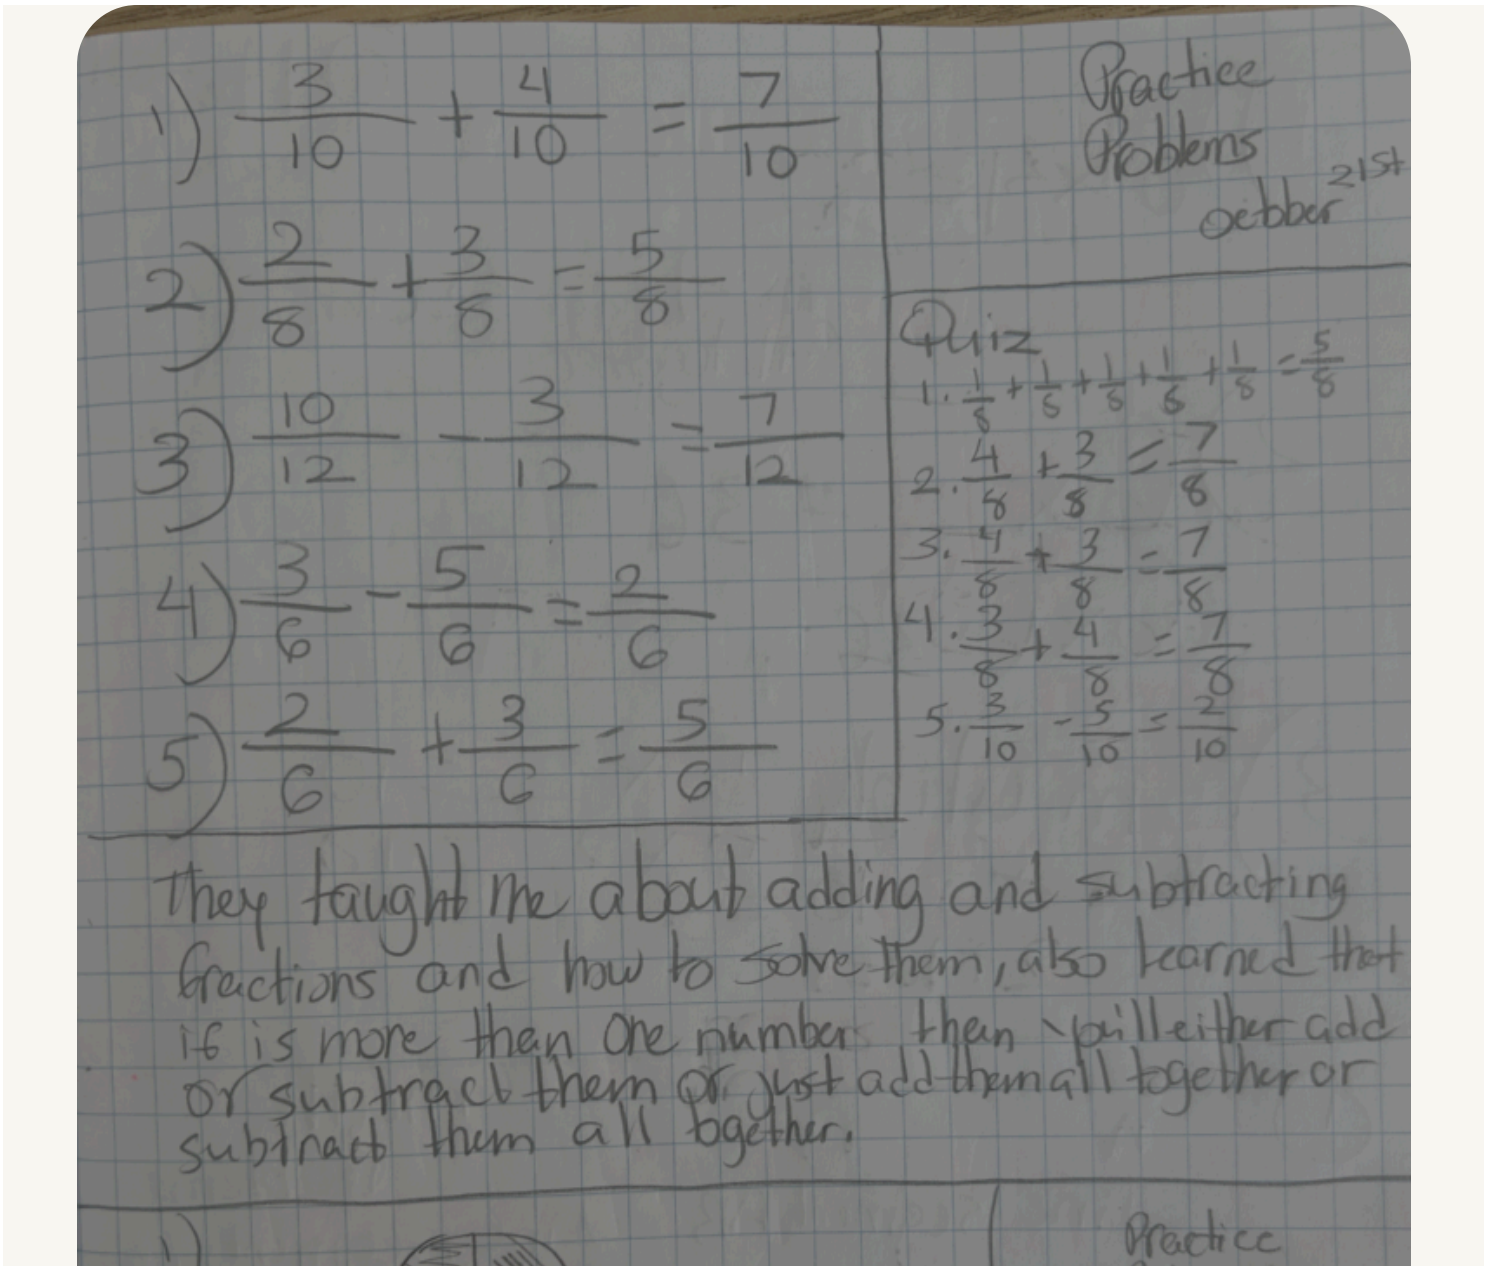 1) 3/10 + 4/10 = 7/10
2) 2/8 + 3/8 = 5/8
3) 10/12 - 3/12 = 7/12
4) 3/6 - 5/6 = 2/6
5) 2/6 + 3/6 = 5/6
Practice
Problems
October 21st
Quiz
1. 1/8 + 1/8 + 1/8 + 1/8 + 1/8 = 5/8
2. 4/8 + 3/8 = 7/8
3. 4/8 + 3/8 = 7/8
4. 3/8 + 4/8 = 7/8
5. 3/10 - 5/10 = 2/10
They taught me about adding and subtracting
fractions and how to solve them, also learned that
if is more than one number then either add
or subtract them or just add them all together or
subtract them all together.
1)
Practice